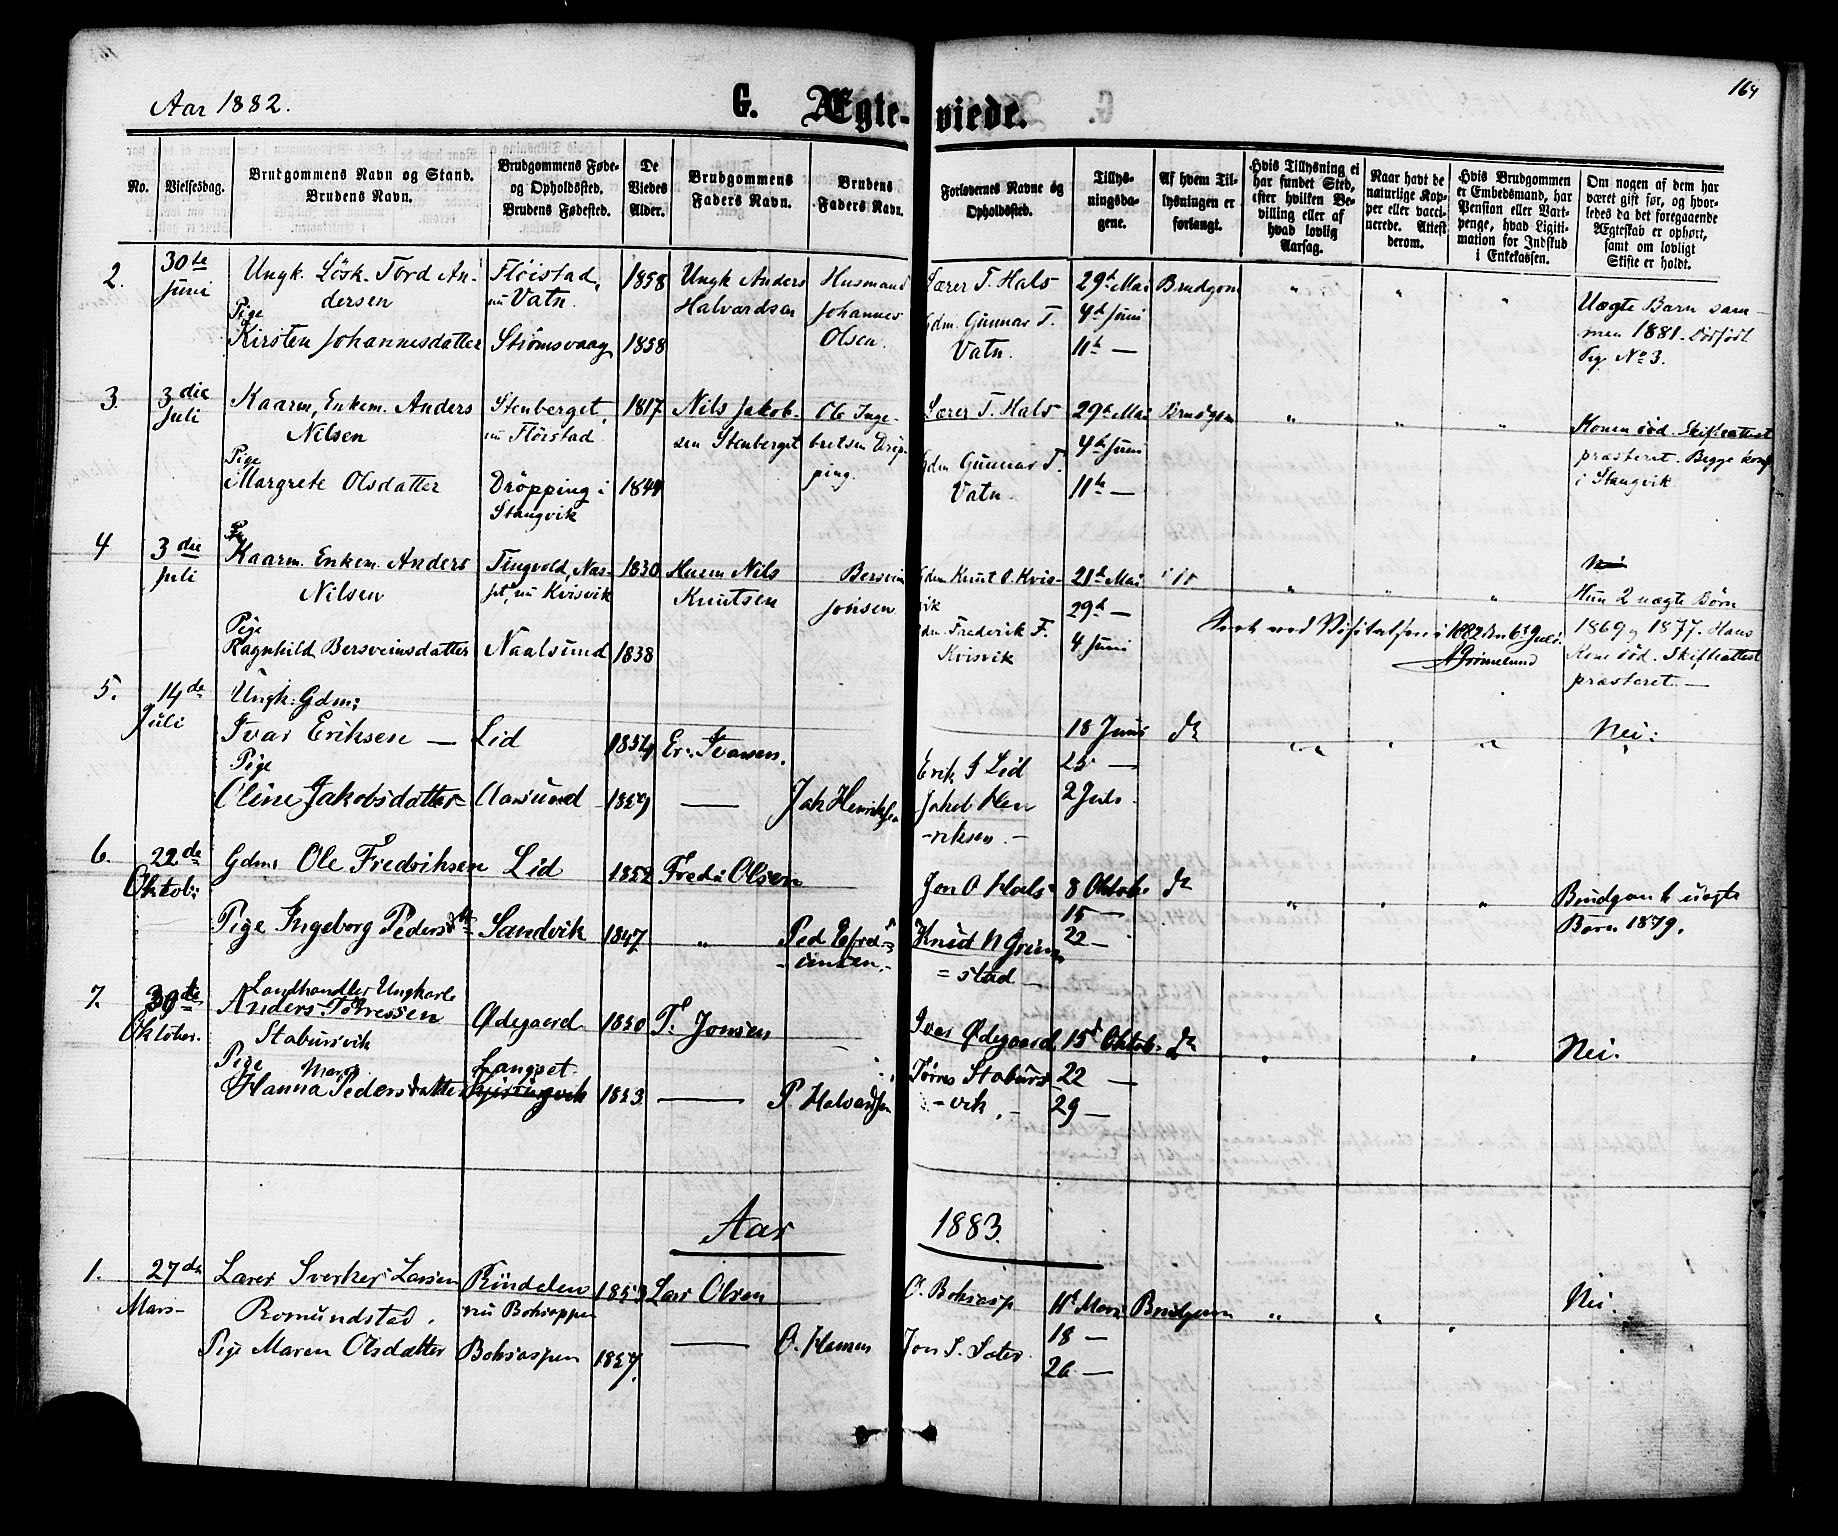 164
Aar 1882.
G. Ægte-viede.
No.
Vielsesdag.
Brudgommens Navn og Stand.
Brudens Navn.
Brudgommens Føde-
og Opholdssted.
Brudens Fødested.
De
Viedes
Alder.
Brudgommens
Faders Navn.
Brudens
Faders Navn.
Forlovernes Navne og
Opholdssted.
Tillys-
ningsda-
gene.
Af hvem Til-
lysningen er
forlangt.
Hvis Tillysning ei
har fundet Sted,
efter hvilken Be-
villing eller af
hvad lovlig
Aarsag.
Naar havt de
naturlige Kop-
per eller vacci-
nerede. Attest
derom.
Hvis Brudgommen
er Embedsmand, har
Pension eller Vart-
penge, hvad Ligiti-
mation for Indskud
i Enkekassen.
Om nogen af dem har
været gift før, og hvor-
ledes da det foregaaende
Ægteskab er ophørt,
samt om lovligt
Skifte er holdt.
2. 30te Juni
Ungk. Lösk. Tord An-
dersen
Pige
Kirsten Johannesdatter
Flöistad,
nu Vatn.
Strömsvaag
1858
1858
Ungk Anders
Halvardsen
Husmand
Johannes
Olsen.
Lærer T. Hals
Gdm. Gunnar T.
Vatn.
29d Mai
4d Juni
11te —
Brudgom
" " "
Uægte Barn sam-
men 1881. Dödfödt
Pig. No 3.
3. 3die Juli
Kaarm, Enkem. Anders
Nilsen
Pige
Margrete Olsdatter
Stenberget,
nu Flöistad
Dröpping i
Stangvik
1817
1844
Nils Jakob-
sen Stenberget
Ole Inge-
bretsen Dröp-
ping.
Lærer T. Hals
Gdm Gunnar T.
Vatn.
29d Mai
4d Juni
11te —
Brudgom
" " "
Konen död. Skifteattest
præsteret. Begge konf
i Stangvik.
4 3die Juli
Kaarm. Enkem. Anders
Nilsen
Pige
Ragnhild Bersveinsdatter
Tingvold, Nas-
set, nu Kvisvik
Naalsund
1830
1838
Husm Nils
Knutsen
Bersvein
Jonsen
Gdm Knut O. Kvis-
vik
Gdm. Frederik F.
Kvisvik
21d Mai
29d —
4 Juni
" " "
Nei
Hun 2 uægte Børn
1869 og 1877. Hans
Kone död. Skifteattest
præsteret. —
Seet ved Visitatsen i 1882 den 6te Juli
Grimelund
5. 14de Juli
Ungk. Gdm:
Ivar Eriksen —
Pige
Oline Jakobsdatter
Lid
Aarsund
1854
Er. Ivarsen.
—
Jak Henriksen
Erik I Lid
Jakob Hen
-riksen —
18 Juni
25 —
2 Juli
do
" " "
Nei:
6. 22de Oktob:
Gdm: Ole Fredriksen
Pige Ingeborg Pedersdtr
Lid
Sandvik
1852
1847
Fred: Olsen
"
Jon O Hals
Knud N Grim
= stad —
8 Oktob.
15 —
22 —
do
" " "
Brudgom 1 uægte
Barn 1879.
7. 30te Oktober.
Landhandler Ungkarl
Anders Törressen
Stabursvik
Pige Mara
Hanna Pedersdatter
Ødegaard
Langset
1850
1853
T. Jonsen
—
P. Halvardsen
Ivar Ødegaard
Törres Staburs
- vik. —
15d Oktob.
22 —
29 —
do
Nei.
Aar 1883.
1. 27de Mars—
Lærer Sverker Larsen
Romundstad.
Pige Maren Olsdatter
Rindalen
nu Boksaspen
Boksaspen
1853
1857.
Lars Olsen
—
O. Hansen
O. Boksasp
Jon S. Sæter
11d Mars
18 —
26 —
Brudgom
" " "
Nei.